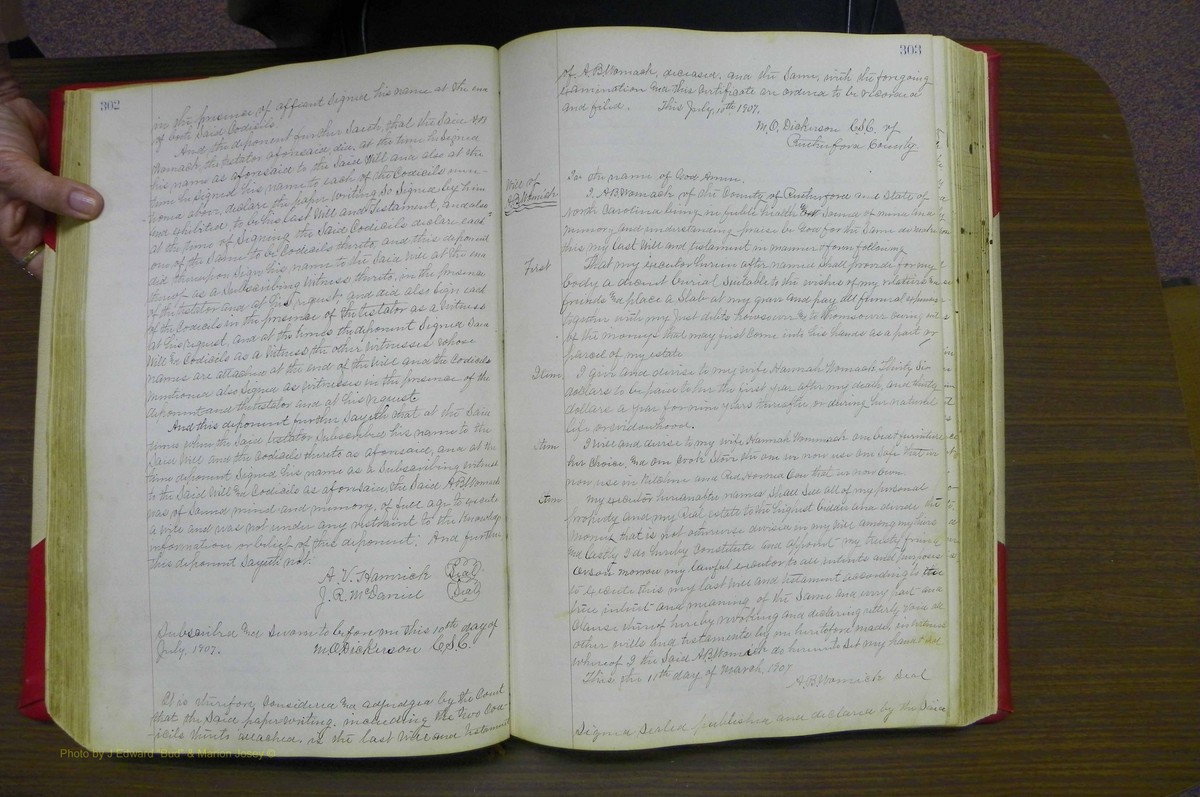 302
in the presence of affiant signed his name at the end
of both said Codicils.
And the deponent further saith, that the said A B
Womack, the testator aforesaid, did, at the time he signed
his name as aforesaid to the said Will and also at the
time he signed his name to each of the Codicils men-
tioned above, declare the paper writing so signed by him
and exhibited, to be his last Will and Testament, and also
at the time of signing the said Codicils declare each
one of the same to be Codicils thereto, and this deponent
did thereupon sign his name to the said Will at the end
thereof as a subscribing witness thereto, in the presence
of the testator and at his request, and did also sign each
of the Codicils in the presence of the testator as a witness
at his request, and at the times the deponent signed said
Will & Codicils as a witness, the other witnesses whose
names are attached at the end of the Will and the Codicils
mentioned also signed as witnesses in the presence of the
deponent and the testator and at his request
And this deponent further sayeth that at the said
times when the said testator subscribed his name to the
said Will and the Codicils thereto as aforesaid, and at the
time deponent signed his name as a subscribing witness
to the said Will & Codicils as aforesaid, the said A B Womack
was of sound mind and memory, of full age to execute
a will and was not under any restraint to the knowledge
information or belief of this deponent. And further
this deponent sayeth not.
A. V. Hamrick (Seal)
J. R. McDaniel (Seal)
Subscribed and sworn to before me this 10th day of
July, 1907. M. O. Dickerson C.S.C.
It is therefore considered and adjudged by the Court
that the said paper writing, including the two Cod-
icils thereto attached, is the last Will and Testament
303
of A. B. Womack, deceased, and the same, with the foregoing
examination and this Certificate are ordered to be recorded
and filed. This July, 10th 1907.
M. O. Dickerson C.S.C. of
Rutherford County.
Will of
A.B. Womack
In the name of God Amen.
I, A B Womack of the County of Rutherford and State of
North Carolina being in feeble health but sound of mind and
memory and understanding praise be God for the same do make
this my last Will and testament in manner & form following
First
That my executor herein after named shall provide for my
body a decent burial suitable to the wishes of my relatives and
friends and place a Slab at my grave and pay all funeral expenses
together with my just debts howsoever & to whomsoever owing out
of the moneys that may first come into his hands as a part or
parcel of my estate
Item
I give and devise to my wife Hannah Womack Thirty Six
dollars to be paid to her the first year after my death, and thirty
dollars a year for nine years thereafter, or during her natural
life or widowhood.
Item
I will and devise to my wife Hannah Wommack one bed & furniture
her choice, and one Cook Stove the one in now use one Safe that in
now use in Kitchen and Red Cow that is now own.
Item
My executor hereinafter named shall sell all of my personal
property and my Real estate to the highest bidder and divide the
money that is not otherwise devised in my will among my heirs
and lastly I do hereby constitute and appoint my trusty friend
Morrow my lawful executor to all intents and purposes
to execute this my last will and testament according to the
true intent and meaning of the same and every part and
clause thereof hereby revoking and declaring utterly void all
other wills and testaments by me heretofore made, in witness
whereof I the said A B Womack do hereunto set my hand & seal
This the 11th day of March 1907
A. B. Womack Seal
Signed sealed published and declared by the said
Photo by J Edward "Bud" & Marion Josey ©